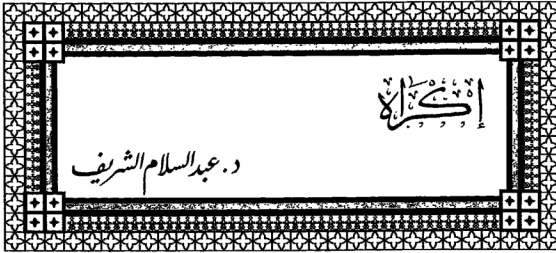 إكراه
د. عبد السلام الشريف